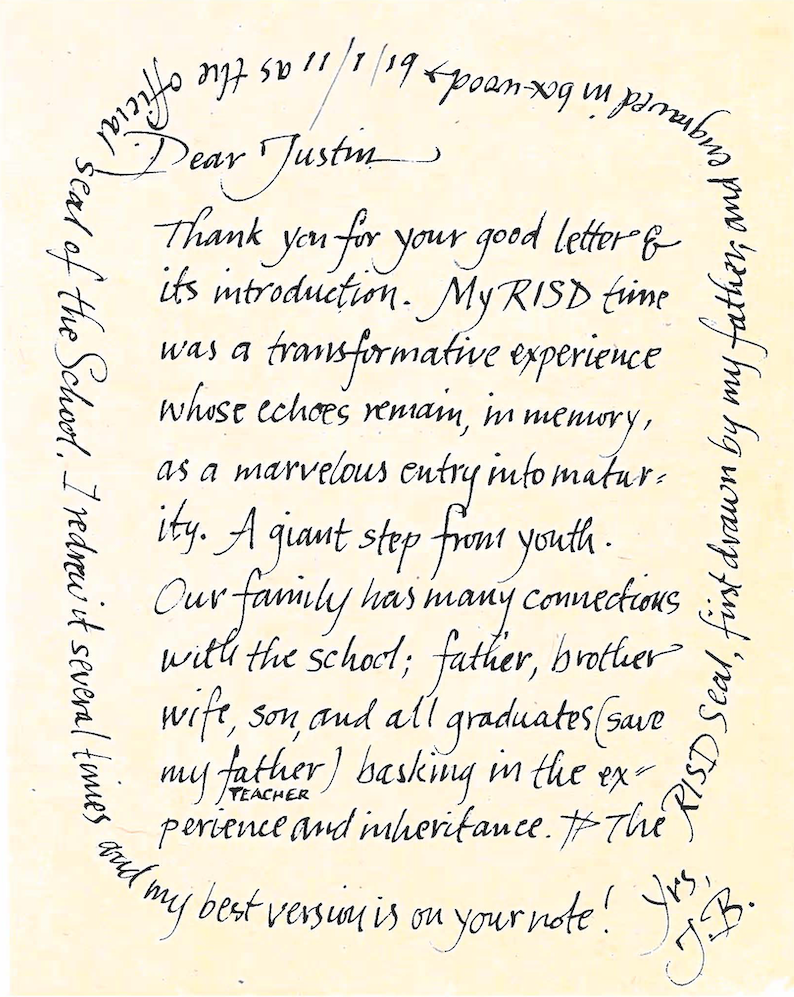 Dear Justin
Thank you for your good letter &
its introduction. My RISD time
was a transformative experience
whose echoes remain, in memory,
as a marvelous entry into matur=
ity. A giant step from youth.
Our family has many connections
with the school; father, brother
wife, son, and all graduates (save
my father) basking in the ex=
TEACHER
perience and inheritance. # The
RISD Seal, first drawn by my father, and
engraved in box-wood as the official
seal of the School. I redrew it several times
and my best version is on your note!
Yrs,
J.B.